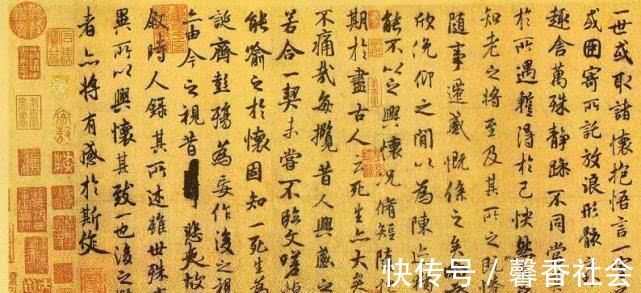 一世或取諸懷抱悟言一
或因寄所託放浪形骸
趣舍萬殊靜躁不同當
於所遇暫得於己快然
知老之將至及其所之既
隨事遷感慨係之矣
欣俛仰之閒以為陳迹
能不以之興懷況脩短隨
期於盡古人云死生亦大矣
不痛哉每攬昔人興感之
若合一契未嘗不臨文嗟悼
能喻之於懷固知一死生為
誕齊彭殤為妄作後之視
亦由今之視昔悲夫故
敘時人錄其所述雖世殊
異所以興懷其致一也後之
者亦將有感於斯文
快传号 / 馨香社会